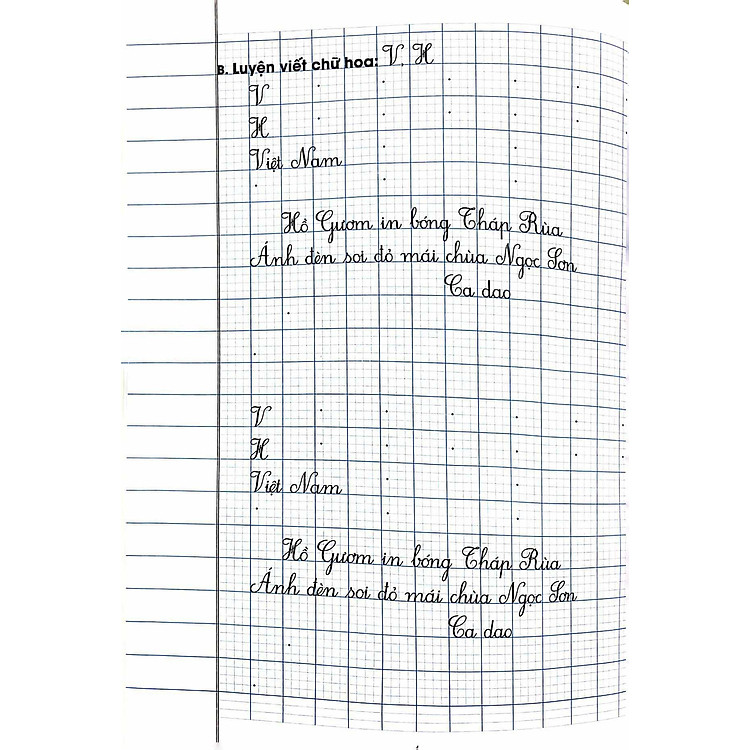 B. Luyện viết chữ hoa: V, H
V
H
Việt Nam
Hồ Gươm in bóng Tháp Rùa
Ánh đèn soi đỏ mái chùa Ngọc Sơn
Ca dao
V
H
Việt Nam
Hồ Gươm in bóng Tháp Rùa
Ánh đèn soi đỏ mái chùa Ngọc Sơn
Ca dao